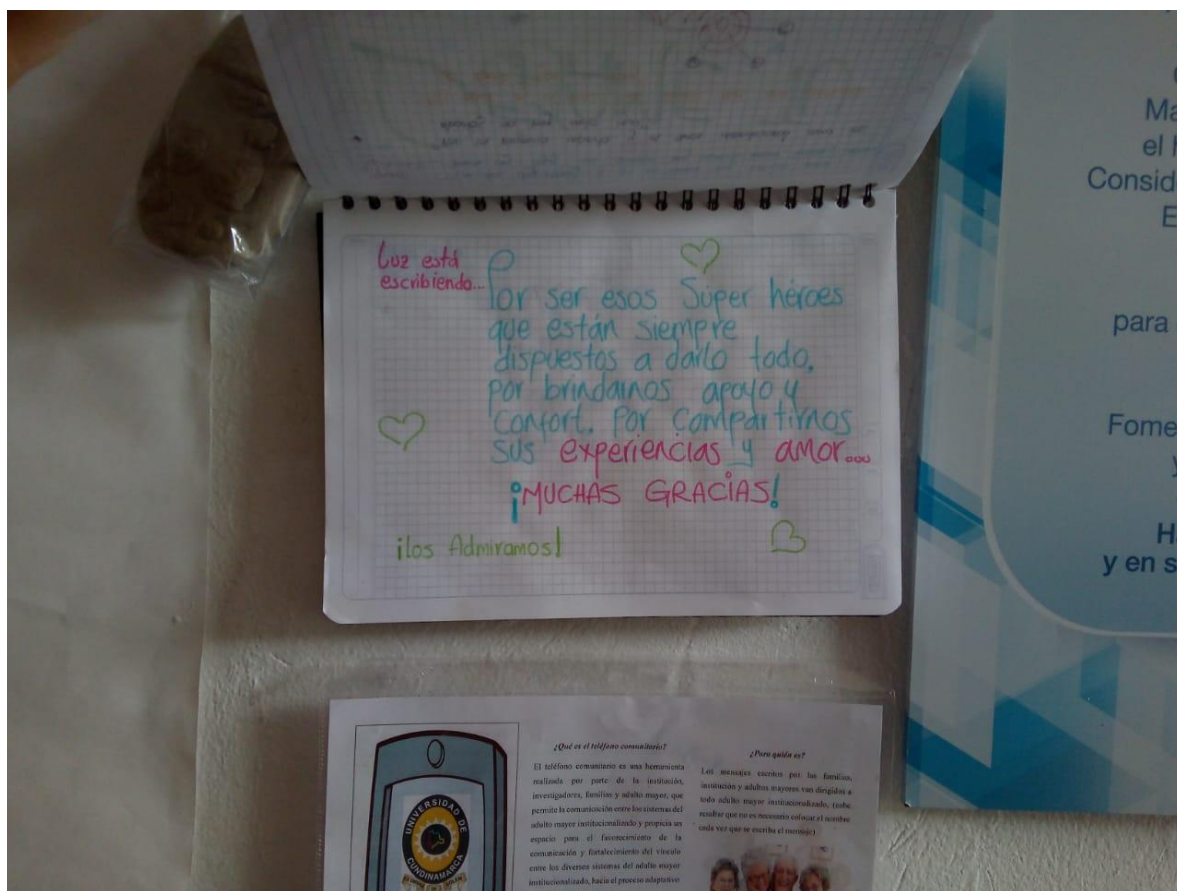 Luz está
escribiendo...
Por ser esos Súper héroes
que están siempre
dispuestos a darlo todo,
por brindarnos apoyo y
confort. Por compartirnos
sus experiencias y amor...
¡MUCHAS GRACIAS!
¡los Admiramos!
¿Qué es el teléfono comunitario?
El teléfono comunitario es una herramienta
realizada por parte de la institución,
investigadores, familias y adulto mayor, que
permite la comunicación entre los sistemas del
adulto mayor institucionalizando y propicia un
espacio para el favorecimiento de la
comunicación y fortalecimiento del vínculo
entre los diversos sistemas del adulto mayor
institucionalizado, hacia el proceso adaptativo
¿Para quién es?
Los mensajes escritos por las familias,
institución y adultos mayores van dirigidos a
todo adulto mayor institucionalizado, (cabe
resaltar que no es necesario colocar el nombre
cada vez que se escriba el mensaje)
UNIVERSIDAD DE
CUNDINAMARCA
Ma
el
Consid
E
para
Fome
y
H
y en s